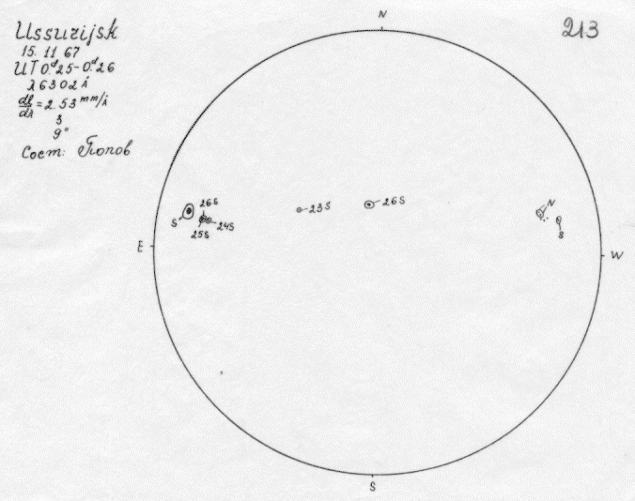 Ussurijsk
15. 11 67
UT 0.ᵈ25-0.ᵈ26
λ6302Å
dl/dλ = 2.53 mm/Å
3
9"
Сост: Попов
213
N
26S
S
25S
24S
23S
26S
N
S
E
W
S